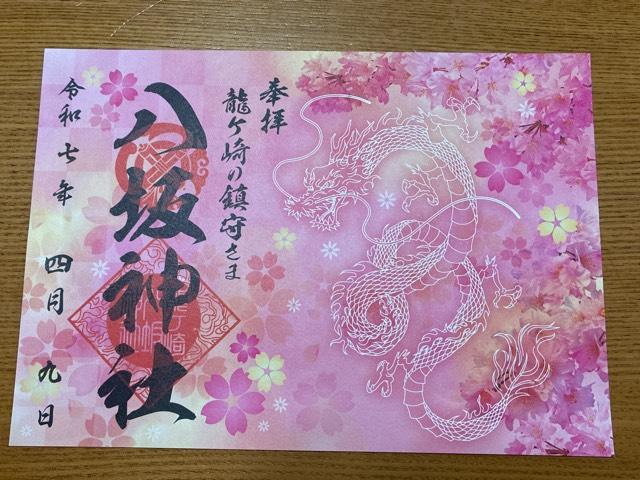 奉拝
龍ケ崎の鎮守さま
八坂神社
令和七年 四月 九日